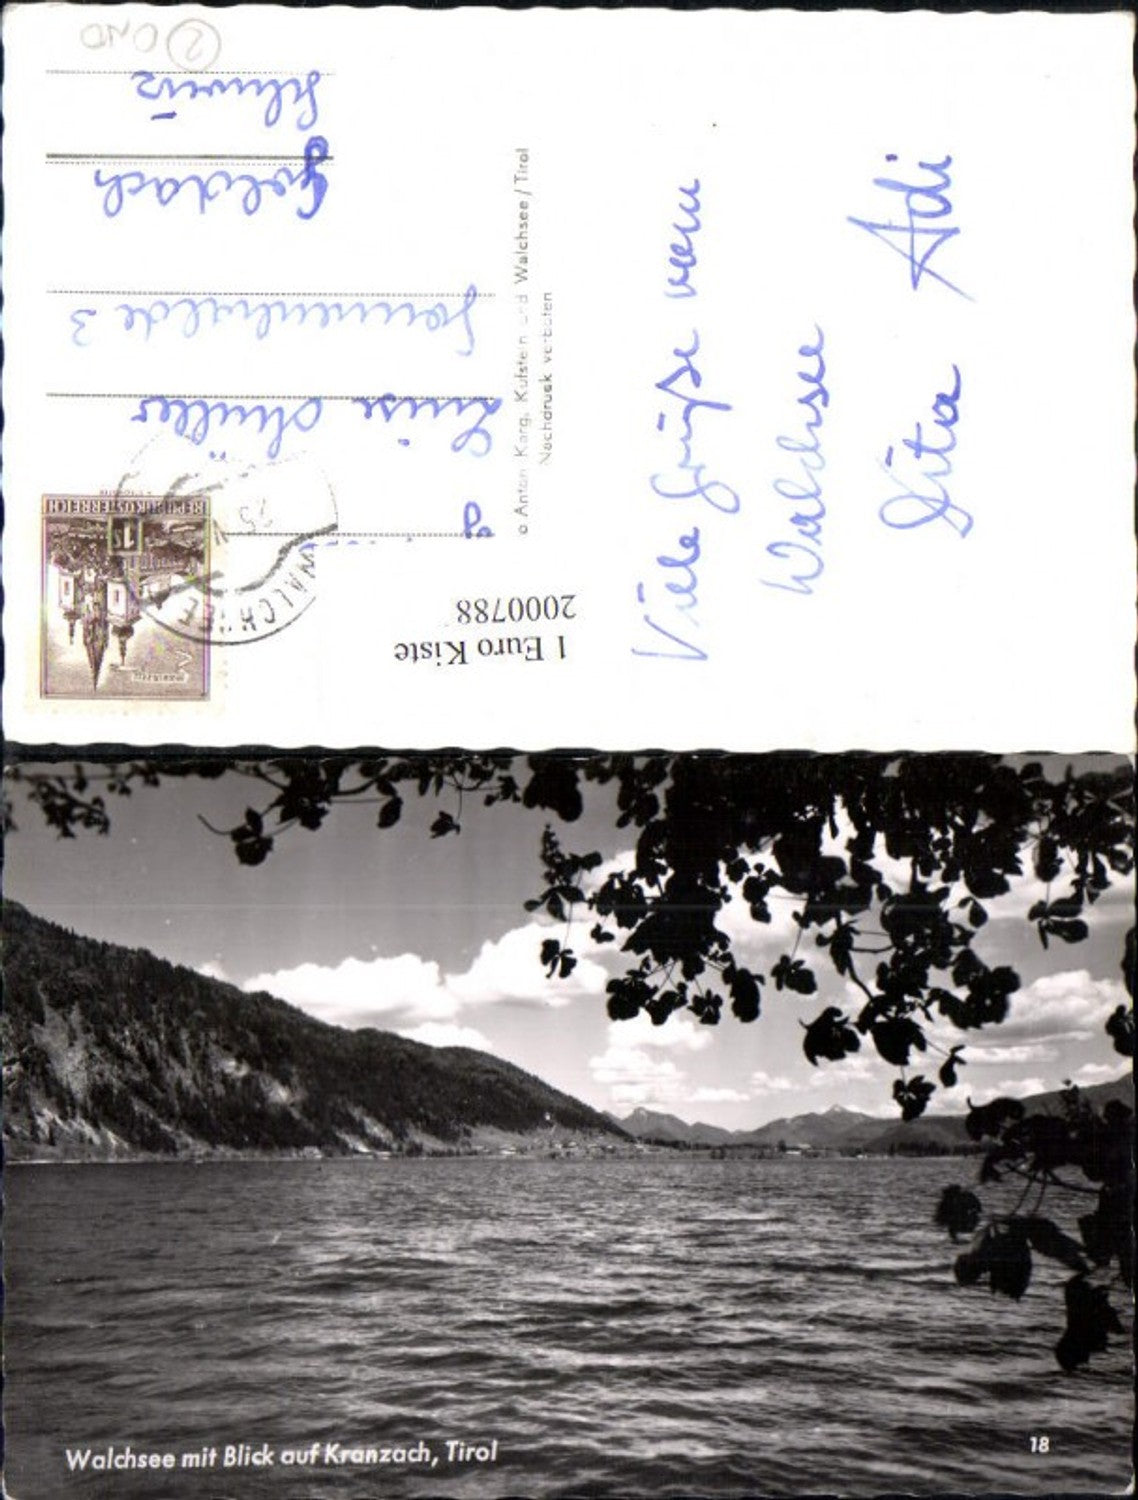 Viele Grüße vom
Walchsee
Rita Adi
© Anton Karg, Kufstein und Walchsee / Tirol
Nachdruck verboten
1 Euro Kiste
2000788
REPUBLIK ÖSTERREICH
1 S
MARIAZELL
WALCHSEE
Luise Müller
Sonnenhalde 3
Goldach
Schweiz
2
Walchsee mit Blick auf Kranzach, Tirol
18